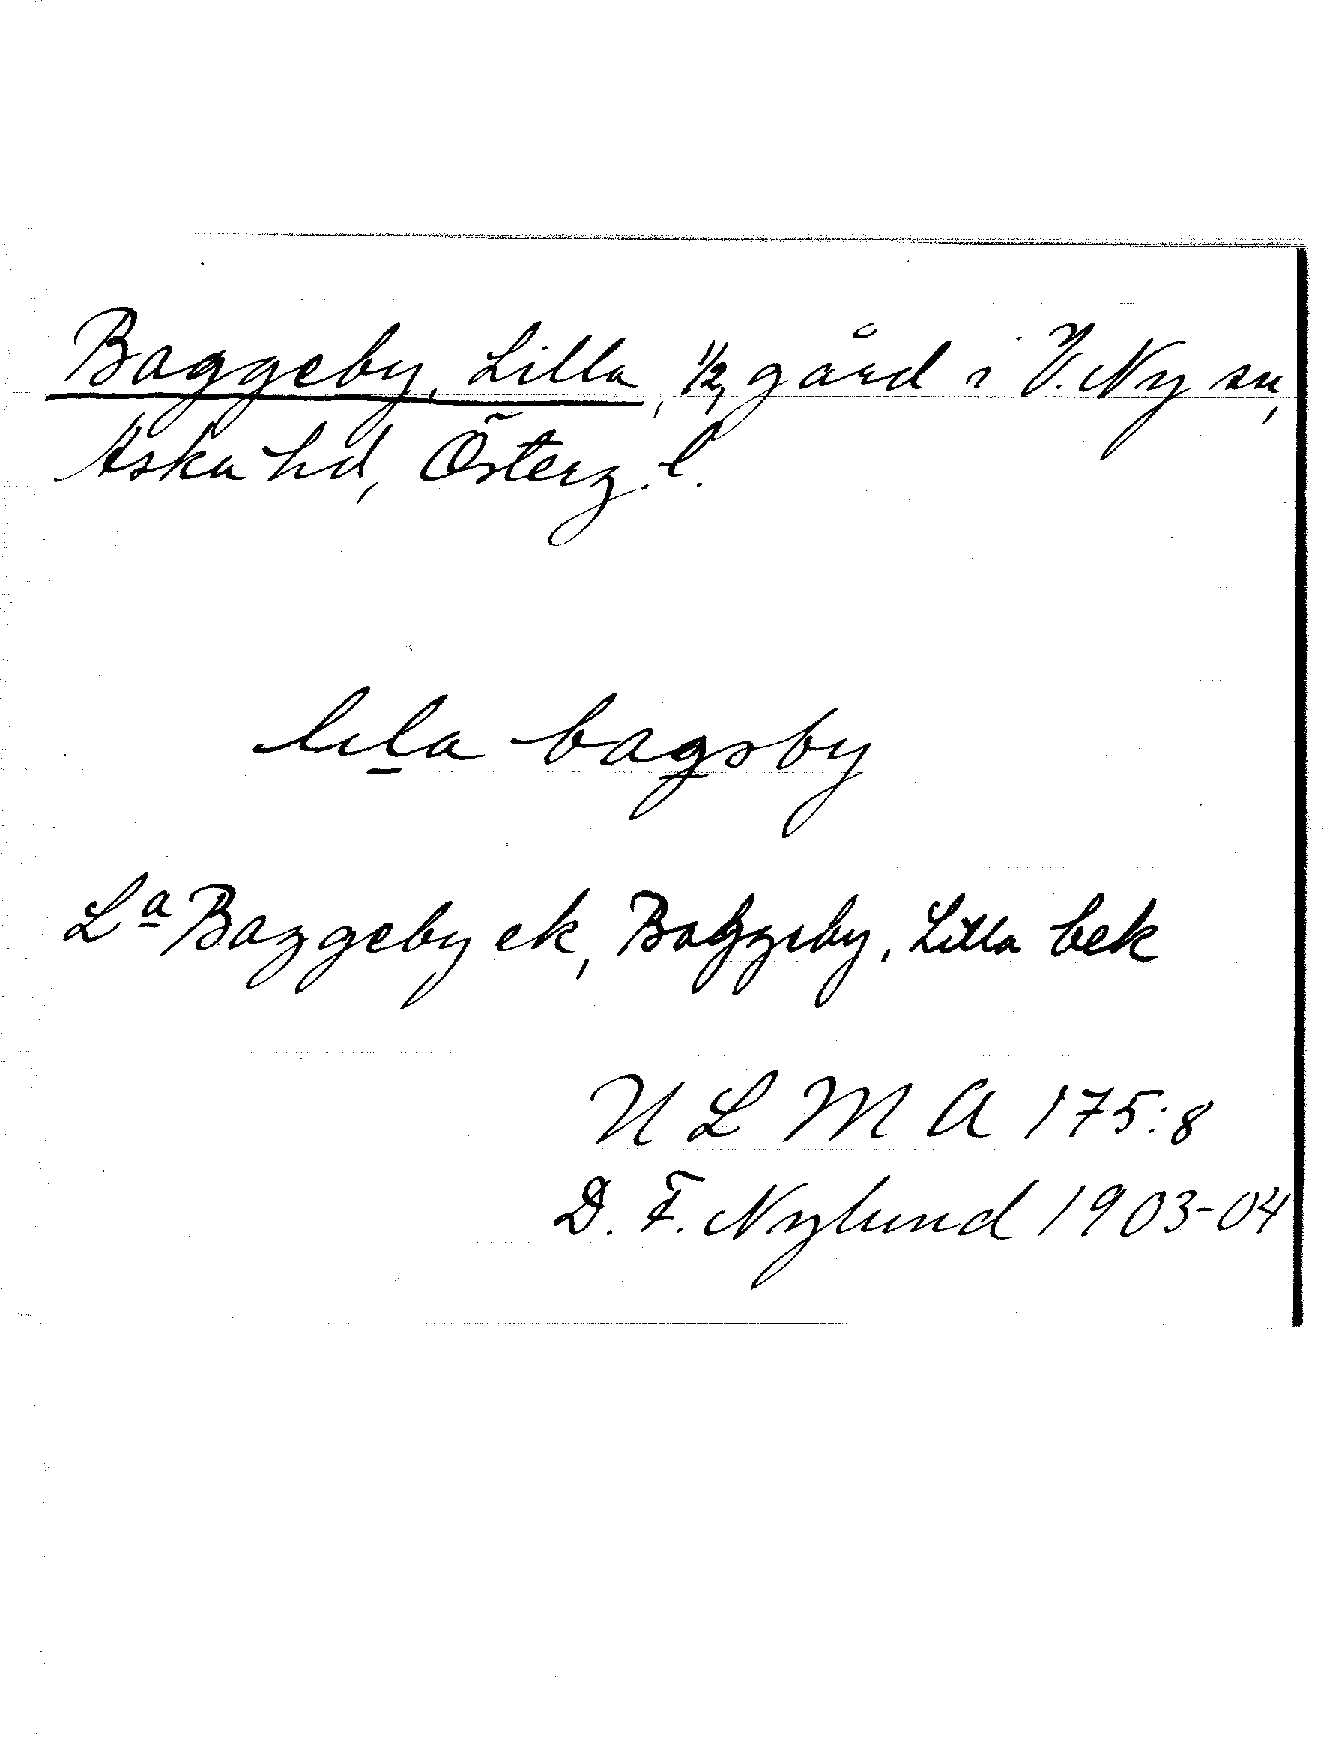 Baggeby, Lilla, 1/2 gård i V. Ny sn,
Aska hd, Österg. l.
lila bagsby
La Baggeby ek, Baggeby, Lilla bek
ULMA 175:8
D. F. Nylund 1903-04